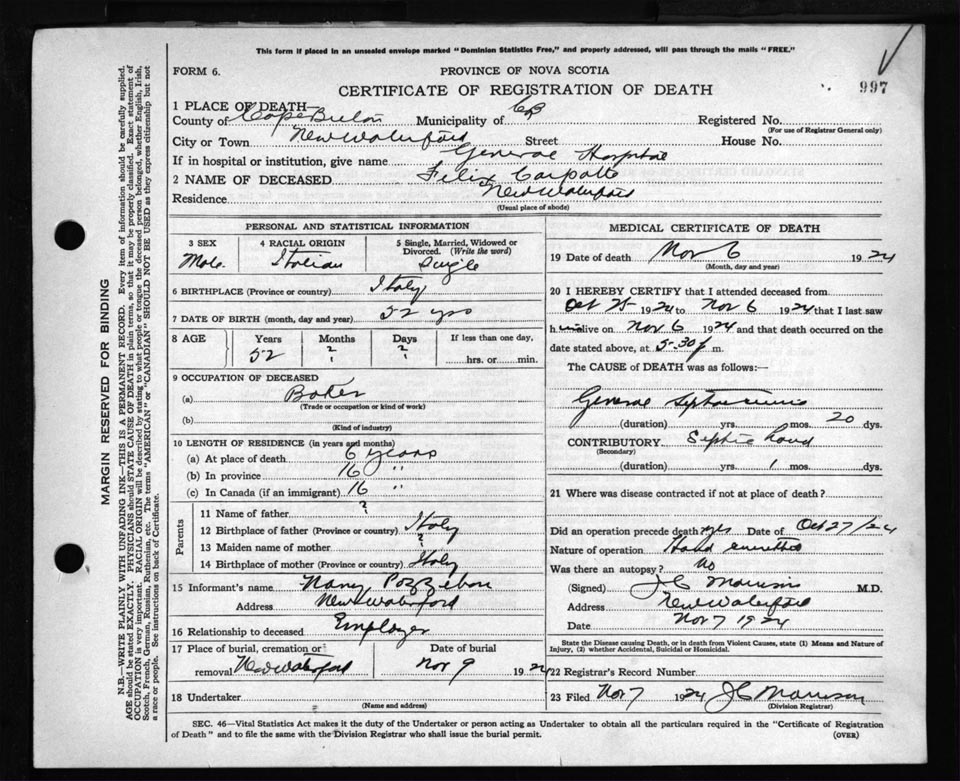 This form if placed in an unsealed envelope marked "Dominion Statistics Free," and properly addressed, will pass through the mails "FREE."
FORM 6.
PROVINCE OF NOVA SCOTIA
997
CERTIFICATE OF REGISTRATION OF DEATH
1 PLACE OF DEATH—
County of Cape Breton Municipality of CB Registered No.
(For use of Registrar General only)
City or Town New Waterford Street House No.
If in hospital or institution, give name General Hospital
2 NAME OF DECEASED Felix
Residence New Waterford
(Usual place of abode)
PERSONAL AND STATISTICAL INFORMATION
3 SEX 4 RACIAL ORIGIN 5 Single, Married, Widowed or Divorced. (Write the word)
Male Italian Single
6 BIRTHPLACE (Province or country) Italy
7 DATE OF BIRTH (month, day and year) 52 yrs
8 AGE Years Months Days If less than one day,
52 ? ? hrs. or min.
9 OCCUPATION OF DECEASED
(a) Baker
(Trade or occupation or kind of work)
(b)
(Kind of industry)
10 LENGTH OF RESIDENCE (in years and months)
(a) At place of death 6 years
(b) In province 16 "
(c) In Canada (if an immigrant) 16 "
Parents
11 Name of father ?
12 Birthplace of father (Province or country) Italy
13 Maiden name of mother ?
14 Birthplace of mother (Province or country) Italy
15 Informant's name
Address New Waterford
16 Relationship to deceased Employer
17 Place of burial, cremation or Date of burial
removal New Waterford Nov 9 1924
18 Undertaker
(Name and address)
MEDICAL CERTIFICATE OF DEATH
19 Date of death Nov 6 1924
(Month, day and year)
20 I HEREBY CERTIFY that I attended deceased from
Oct 25 1924 to Nov 6 1924 that I last saw
him alive on Nov 6 1924 and that death occurred on
date stated above, at 5-30 p m.
The CAUSE of DEATH was as follows:—
General
(duration) yrs. mos. 20 dys.
CONTRIBUTORY Septic hand
(Secondary)
(duration) yrs. 1 mos. dys.
21 Where was disease contracted if not at place of death?
Did an operation precede death? yes Date of Oct 27/24
Nature of operation Hand
Was there an autopsy? No
(Signed) J C Morrison M.D.
Address New Waterford
Date Nov 7 1924
State the Disease causing Death, or in death from Violent Causes, state (1) Means and Nature of
Injury, (2) whether Accidental, Suicidal or Homicidal.
22 Registrar's Record Number
23 Filed Nov 7 1924 J C Morrison
(Division Registrar)
SEC. 46—Vital Statistics Act makes it the duty of the Undertaker or person acting as Undertaker to obtain all the particulars required in the "Certificate of Registration
of Death" and to file the same with the Division Registrar who shall issue the burial permit. (OVER)
MARGIN RESERVED FOR BINDING
N.B.—WRITE PLAINLY WITH UNFADING INK—THIS IS A PERMANENT RECORD. Every item of information should be carefully supplied.
AGE should be stated EXACTLY. PHYSICIANS should STATE CAUSE OF DEATH in plain terms, so that it may be properly classified. Exact statement of
OCCUPATION is very important. RACIAL ORIGIN will be described by stating to what people or tongue the deceased person belonged, whether English, Irish,
Scotch, French, German, Russian, Ruthenian, etc. The terms "AMERICAN" or "CANADIAN" SHOULD NOT BE USED as they express citizenship but not
a race or people. See instructions on back of Certificate.